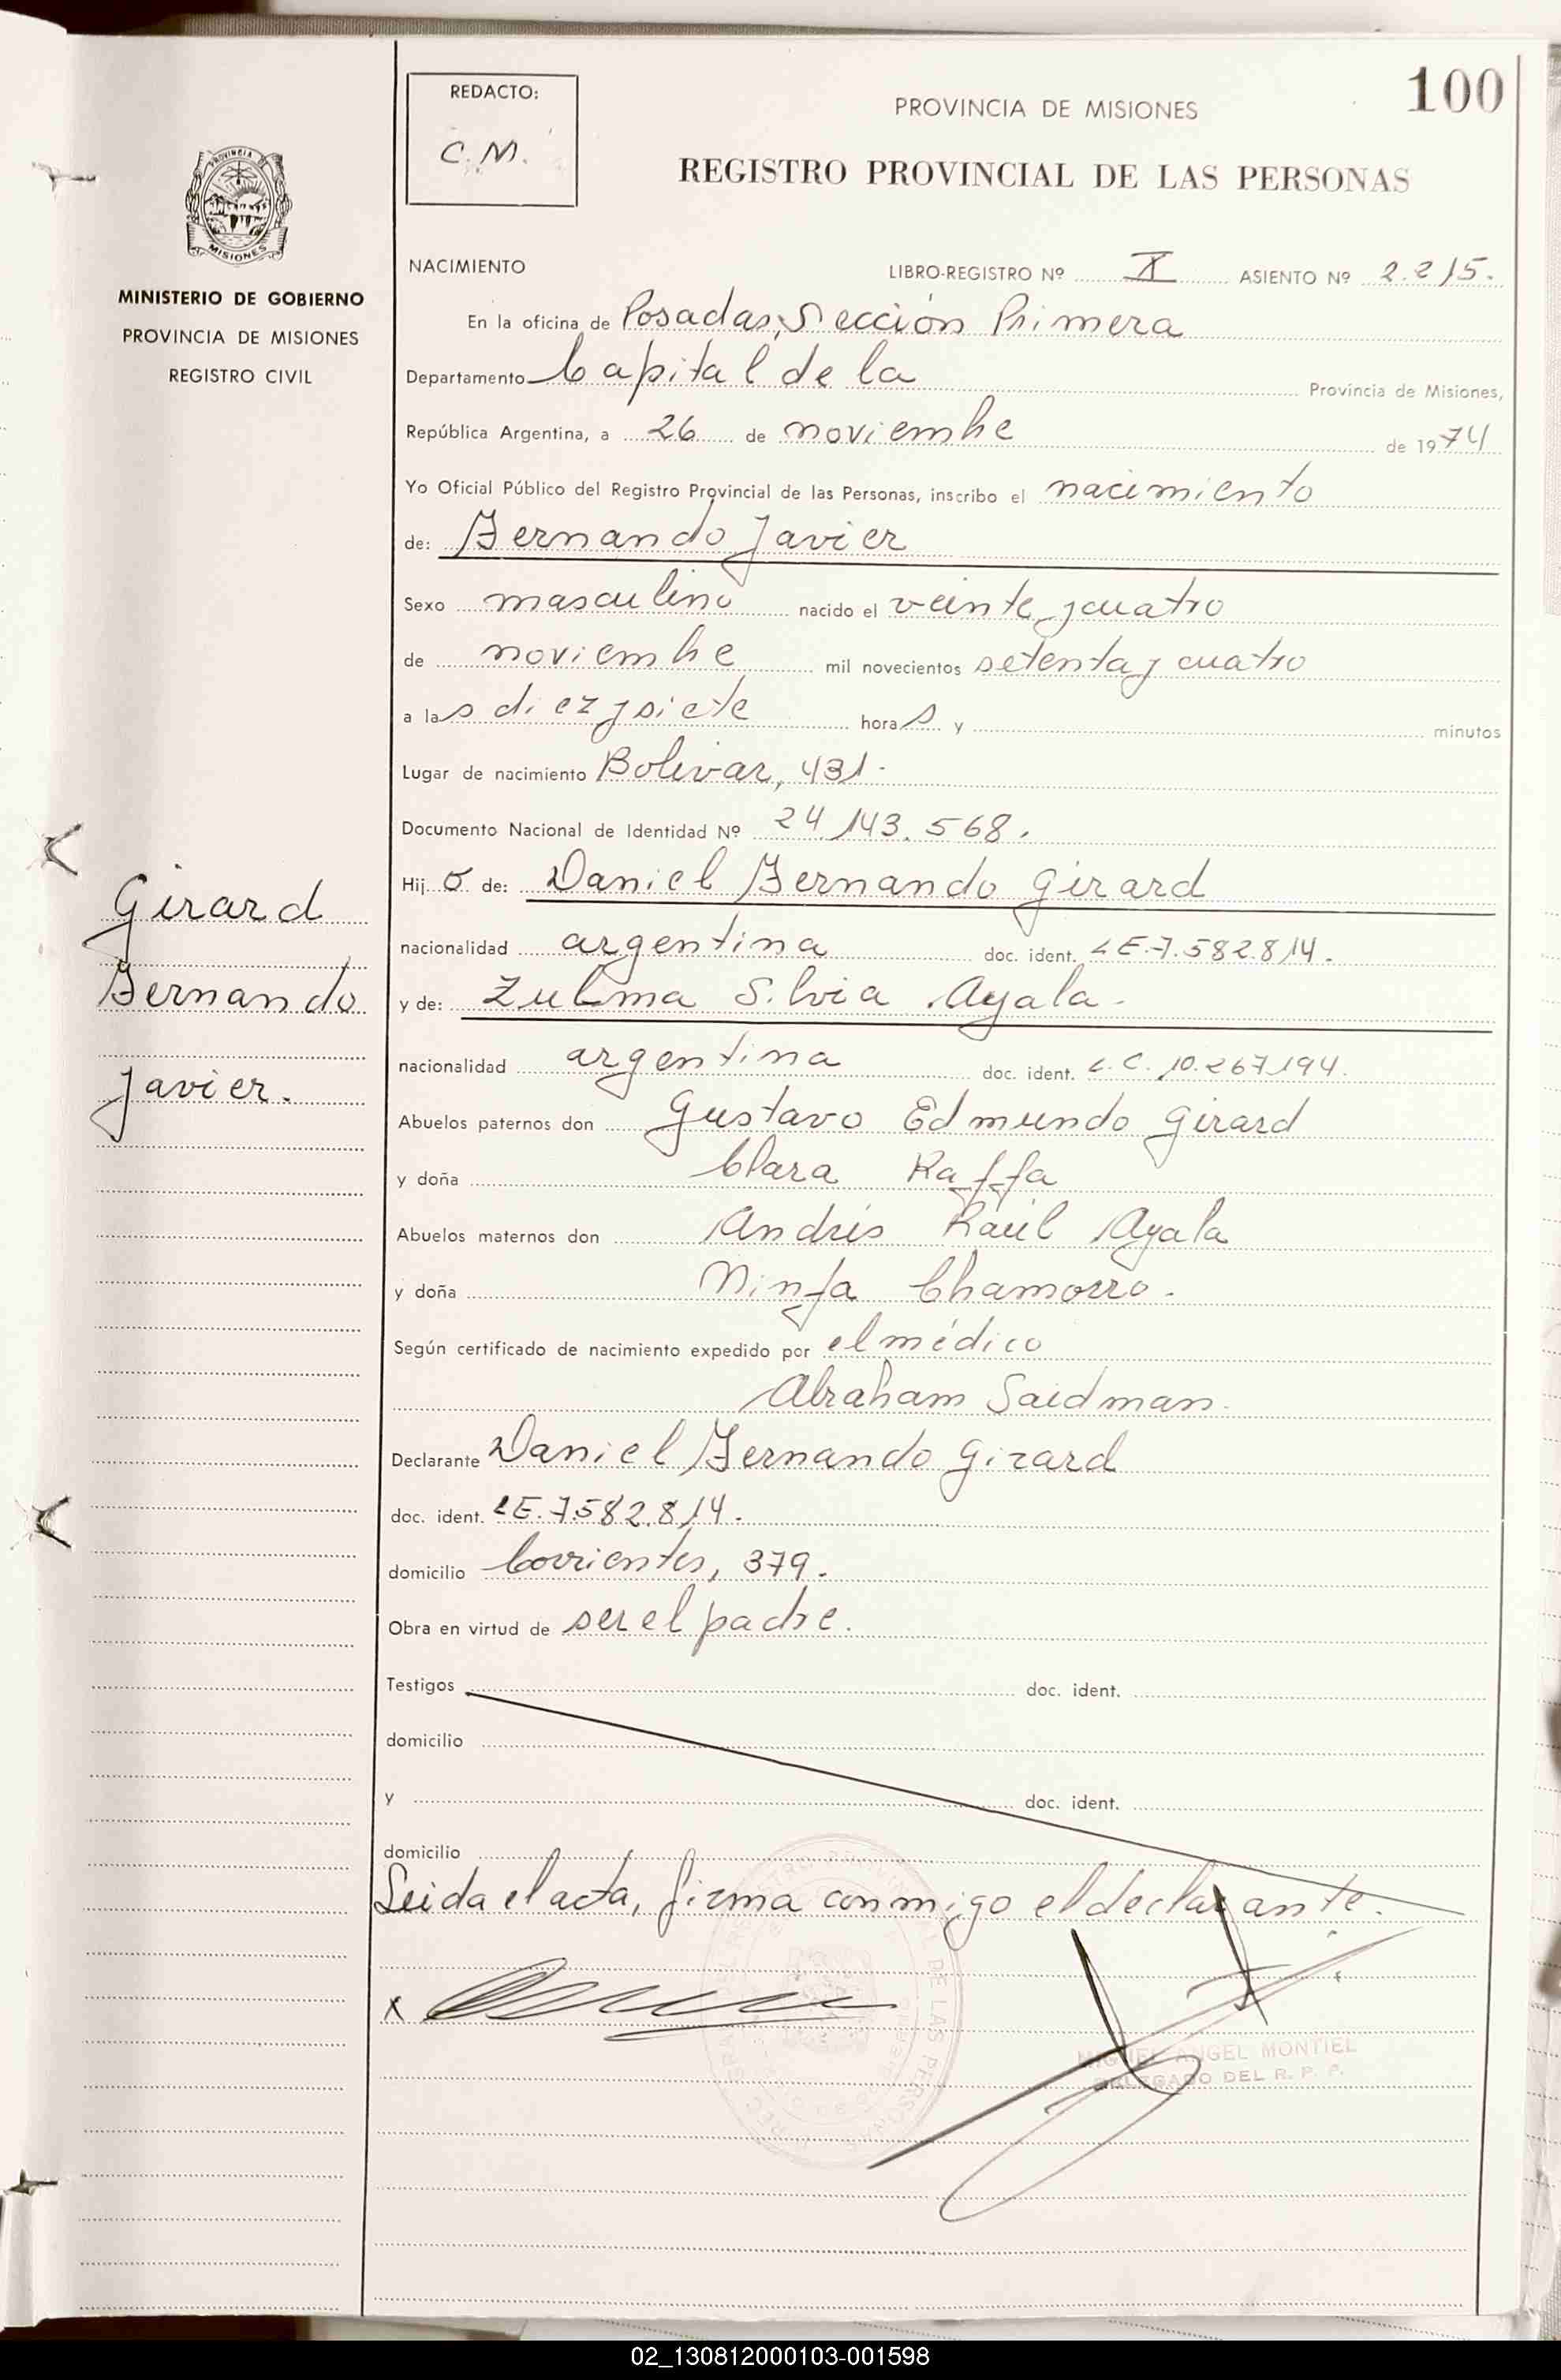 100
REDACTO:
C.M.
PROVINCIA DE MISIONES
REGISTRO PROVINCIAL DE LAS PERSONAS
PROVINCIA DE
MISIONES
MINISTERIO DE GOBIERNO
PROVINCIA DE MISIONES
REGISTRO CIVIL
NACIMIENTO LIBRO-REGISTRO Nº X ASIENTO Nº 2.215.
En la oficina de Posadas, Sección Primera
Departamento Capital de la Provincia de Misiones,
República Argentina, a 26 de noviembre de 1974
Yo Oficial Público del Registro Provincial de las Personas, inscribo el nacimiento
de: Fernando Javier
Sexo masculino nacido el veinte y cuatro
de noviembre mil novecientos setenta y cuatro
a las diez y siete horas y minutos
Lugar de nacimiento Bolivar, 431.
Documento Nacional de Identidad Nº 24.143.568.
Hijo de: Daniel Fernando Girard
nacionalidad argentina doc. ident. LE.7.582.814.
y de: Zulma Silvia Ayala.
nacionalidad argentina doc. ident. L.C. 10.267.194.
Abuelos paternos don Gustavo Edmundo Girard
y doña Clara Raffa
Abuelos maternos don Andrés Raúl Ayala
y doña Ninfa Chamorro.
Según certificado de nacimiento expedido por el médico
Abraham Saidman.
Declarante Daniel Fernando Girard
doc. ident. LE.7.582.814.
domicilio Corrientes, 379.
Obra en virtud de ser el padre.
Testigos doc. ident.
domicilio
y doc. ident.
domicilio
Leida el acta, firma conmigo el declarante.
x
MIGUEL ANGEL MONTIEL
DELEGADO DEL R. P. P.
Girard
Fernando
Javier.
02_130812000103-001598